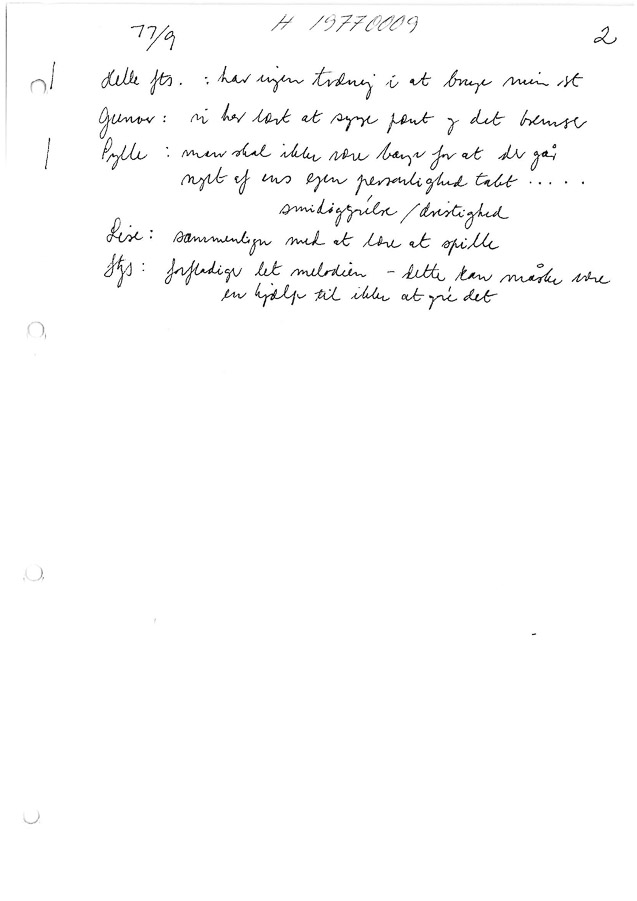 77/9
H 19770009
2
Helle fts. : har ingen træning i at bruge min st
Gunnar: vi har lært at synge pænt og det bremser
Pylle : man skal ikke være bange for at der går
nyt af ens egen personlighed tabt .....
smidiggørelse / dristighed
Lise: sammenlign med at lære at spille
fts: forfladige let melodien - dette kan måske være
en hjælp til ikke at gøre det